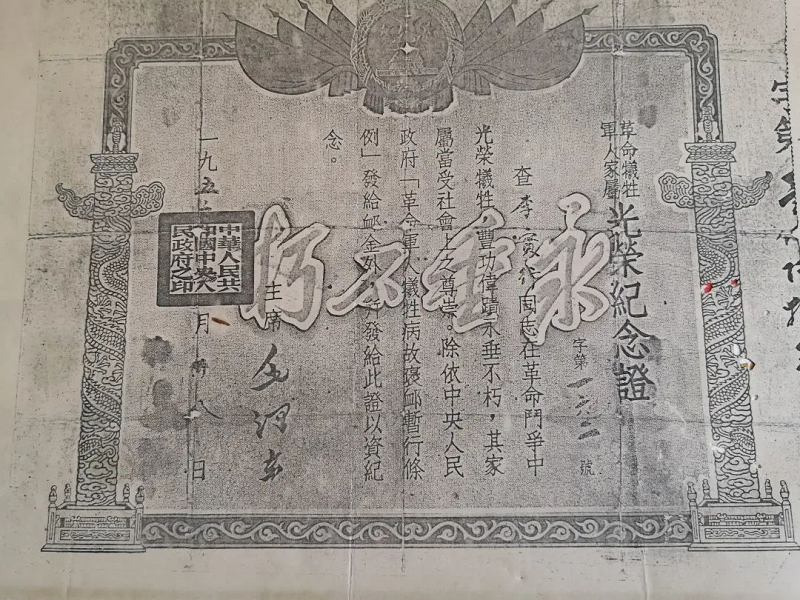 革命犧牲
軍人家屬
光榮紀念證
字第
號
查李
同志在革命鬥爭中
光榮犧牲,豐功偉蹟永垂不朽,其家
屬當受社會上之尊崇。除依中央人民
政府「革命軍人犧牲病故褒卹暫行條
例」發給卹金外,并發給此證以資紀
念。
永垂不朽
主席 毛澤東
一九五
月
八日
中華人民共
和國中央人
民政府之印